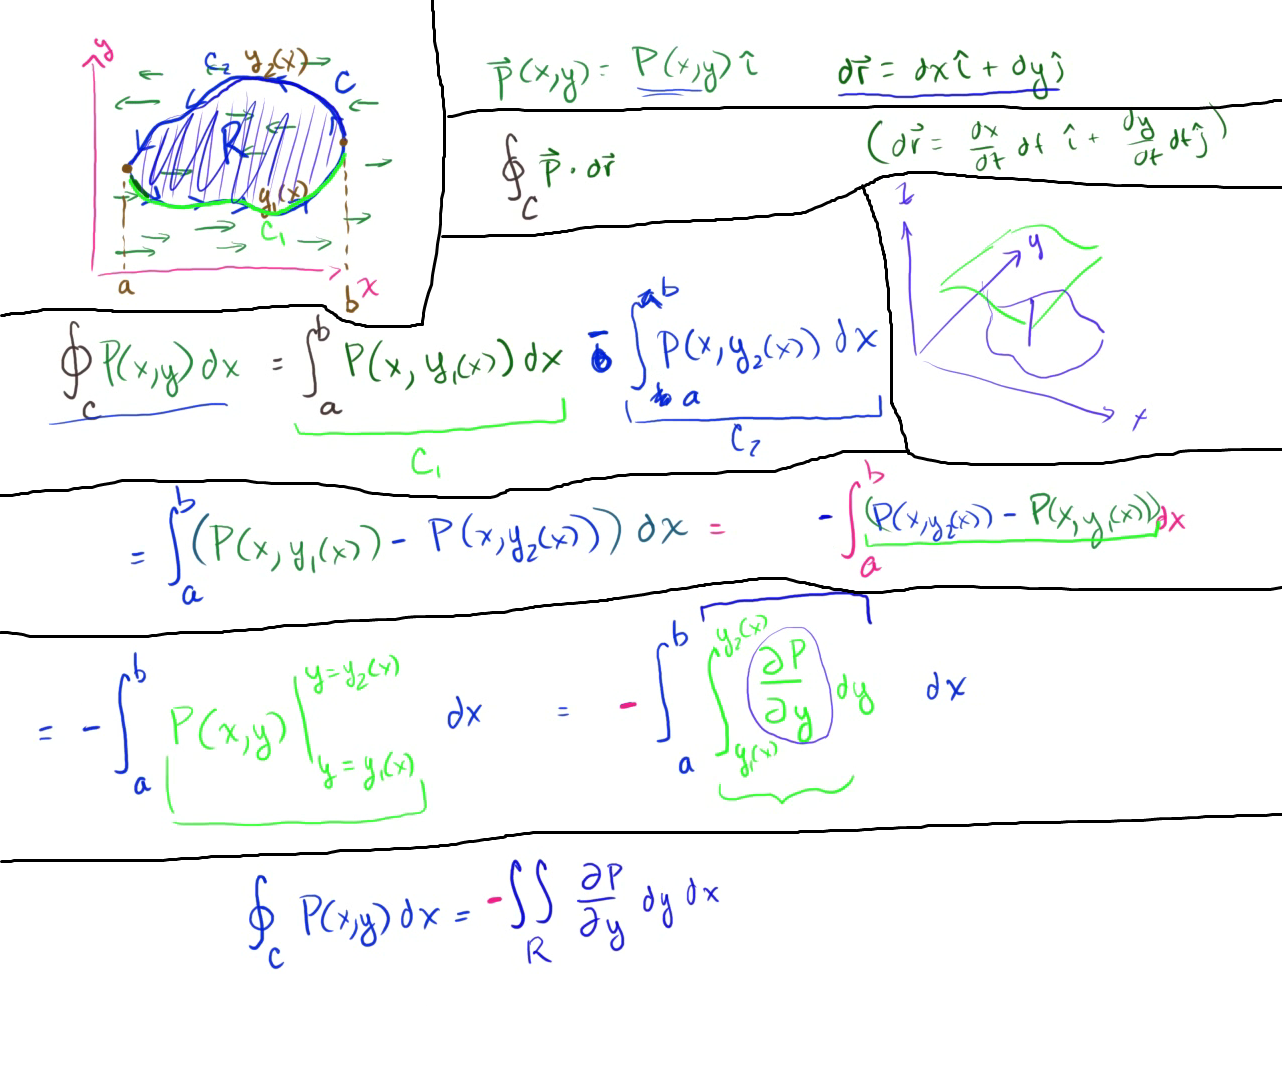 y
C₂ y₂(x)
C
R
y₁(x)
C₁
a
b
x
P⃗(x,y) = P(x,y) î
dr⃗ = dx î + dy ĵ
∮_C P⃗ · dr⃗
(dr⃗ = dx/dt dt î + dy/dt dt ĵ)
z
y
x
∮_C P(x,y) dx = ∫_a^b P(x, y₁(x)) dx - ∫_a^b P(x, y₂(x)) dx
C₁
C₂
= ∫_a^b (P(x, y₁(x)) - P(x, y₂(x))) dx = - ∫_a^b (P(x, y₂(x)) - P(x, y₁(x))) dx
= - ∫_a^b P(x,y) |_{y = y₁(x)}^{y = y₂(x)} dx = - ∫_a^b ∫_{y₁(x)}^{y₂(x)} ∂P/∂y dy dx
∮_C P(x,y) dx = - ∬_R ∂P/∂y dy dx